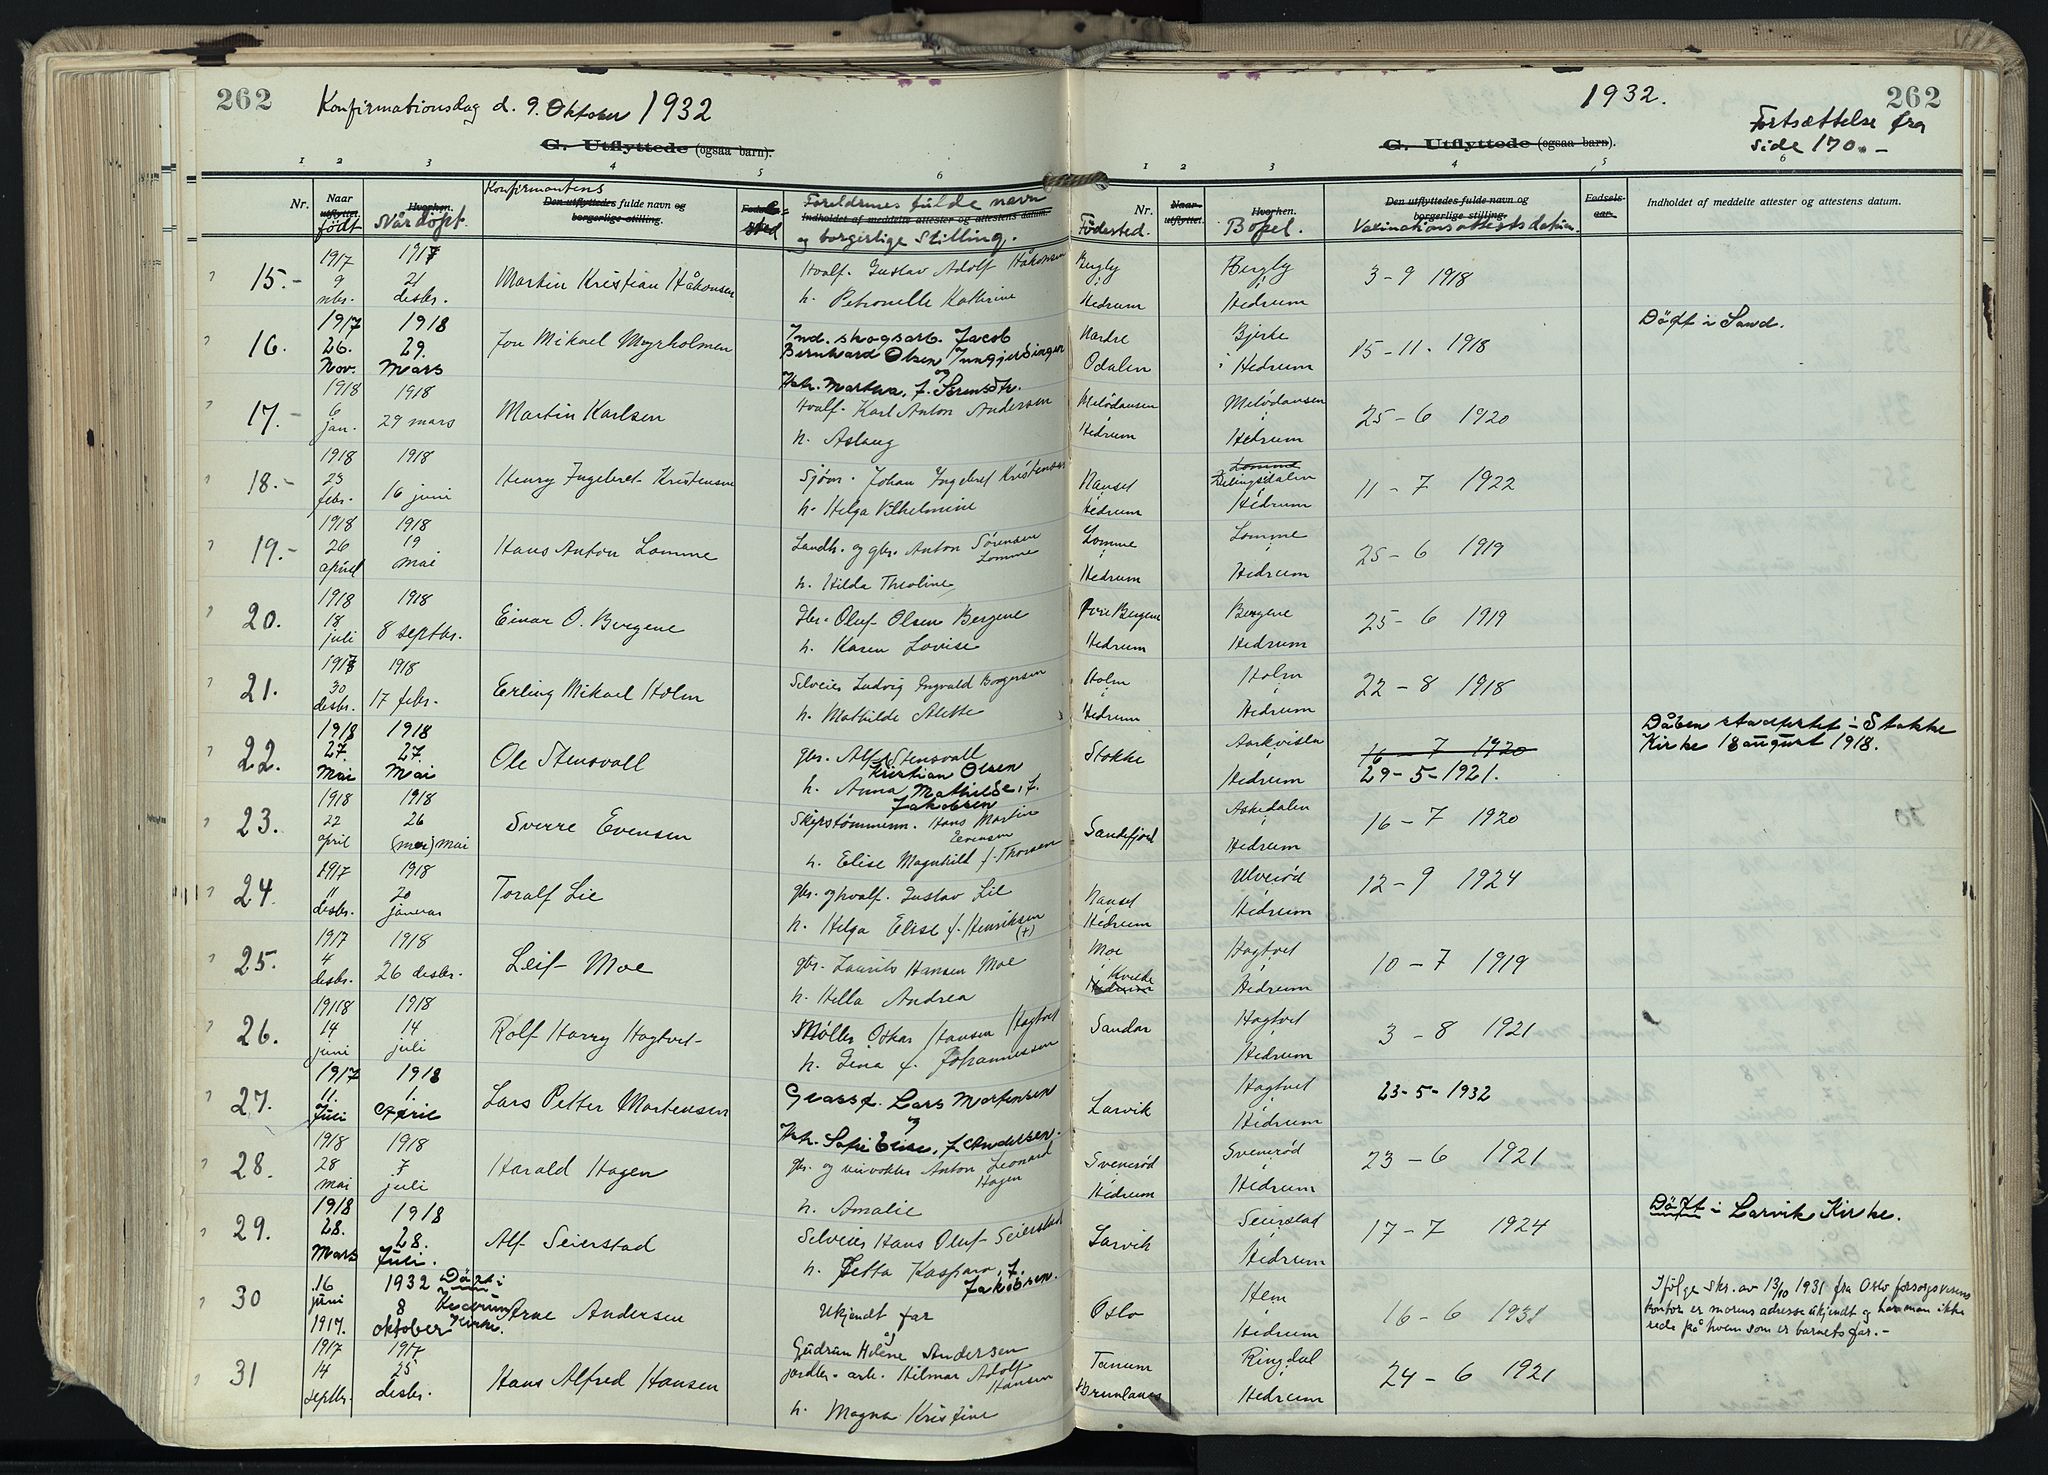 262
Konfirmationsdag d. 9. Oktober 1932
G. Utflyttede (ogsaa barn).
1 2 3 4 5 6
Nr.
Naar utflyttet. født
Hvorhen. Når døpt.
Konfirmantens
Den utflyttedes fulde navn og
borgerlige stilling.
Foreldrenes fulde navn
Indholdet af meddelte attester og attestens datum.
og borgerlige stilling.
15.- 1917 9 nbr. 1917 21 desbr. Martin Kristian Håkonsen
Hvalf. Gustav Adolf Håkonsen
h. Petronelle Kathrine
16. 1917 26. Nov. 1918 29. Mars Jon Mikael Myrholmen
Ind. skogsarb. Jacob
Bernhard Olsen
og
Hstr. Martha, f. Sørensdtr.
17.- 1918 6 jan. 1918 29 mars Martin Karlsen
Hvalf. Karl Anton Andersen
h. Aslaug
18.- 1918 23 febr. 1918 16 juni Henry Ingebret Kristensen
Sjøm. Johan Ingebret Kristensen
h. Helga Vilhelmine
19.- 1918 26 april 1918 19 mai Hans Anton Lomme
Landh. og gbr. Anton Sørensen
Lomme
h. Hilda Theoline
20. 1918 18 juli 1918 8 septbr. Einar O. Bergene
Gbr. Oluf Olsen Bergene
h. Karen Lovise
21. 1917 30 desbr. 1918 17 febr. Erling Mikael Holm
Selveier Ludvig Ingvald Borgersen
h. Mathilde Alette
22. 1918 27. Mai 1918 27. Mai Ole Stensvall
gbr. Alf Stensvall
Kristian Olsen
h. Anna Mathilde, f.
Jakobsen
23. 1918 22 april 1918 26 (mai) mai Sverre Evensen
Skipstømmerm. Hans Martin
Evensen
h. Elise Magnhild f. Thorsen
24. 1917 11 desbr. 1918 20 januar Toralf Lie
gbr. og hvalf. Gustav Lie
h. Helga Elise f. Henriksen
(+)
25. 1917 4 desbr. 1918 26 desbr. Leif Moe
gbr. Laurits Hansen Moe
h. Hella Andrea
26. 1918 14 juni 1918 14 juli Rolf Harry Hagtvet
Møller Oskar Hansen Hagtvet
h. Lina f. Johannessen
27. 1917 11. Juli 1918 1. April Lars Petter Mortensen
Glassf. Lars Mortensen
og
Hstr. Sofie Elise, f. Andersen.
28. 1918 28 mai 1918 7 juli Harald Hagen
gbr. og veivokter Anton Leonard
Hagen
h. Amalie
29. 1918 28. Mars 1918 28. Juli. Alf Seierstad
Selveier Hans Oluf Seierstad
h. Jetta Kaspara, f.
Jakobsen.
30 16 juni 1917. 1932 8 oktober Døpt i Hedrum Kirke. Arne Andersen
Ukjendt far
Gudrun Helene Andersen
31 1917 14 septbr. 1917 25 desbr. Hans Alfred Hansen
jordbr. arb. Hilmar Adolf
Hansen
h. Magna Kristine
1932.
262
Fortsættelse fra
side 170.-
G. Utflyttede (ogsaa barn).
1 2 3 4 5 6
Nr.
Fødested.
Naar utflyttet.
Hvorhen. Bopel.
Den utflyttedes fulde navn og
borgerlige stilling.
Vaxinationsattestsdatum.
Fødsels-
aar.
Indholdet af meddelte attester og attestens datum.
Bergby i Hedrum Bergby i Hedrum 3-9 1918
Nordre Odalen Bjerke i Hedrum 15-11. 1918 Døpt i Sand.
Hedrum Hedrum 25-6 1920
Nanset i Hedrum Lomme Hedrum 11-7 1922
Lomme i Hedrum Lomme i Hedrum 25-6 1919
Øvre Bergene Hedrum Bergene i Hedrum 25-6 1919
Holm i Hedrum Holm i Hedrum 22-8 1918
Stokke Hedrum 16-7 1920
29-5-1921.
Dåben stadfestet i Stokke
Kirke 18 august 1918.
Sandefjord Askedalen i Hedrum 16-7 1920
Nanset Hedrum Ulverød i Hedrum 12-9 1924
Moe i Kvelde Hedrum Hagtvet i Hedrum 10-7 1919
Sandar Hagtvet i Hedrum 3-8 1921
Larvik Hagtvet Hedrum 23-5-1932
Svenerød i Hedrum Svenerød i Hedrum 23-6 1921
Larvik Seierstad i Hedrum 17-7 1924 Døpt i Larvik Kirke.
Oslo Hem i Hedrum 16-6 1931
Ifølge skr. av 13/10 1931 fra Oslo forsorgsvesens
kontor er morens adresse ukjendt og har man ikke
rede på hvem som er barnets far.-
Tanum Brunlanes Ringdal i Hedrum 24-6 1921